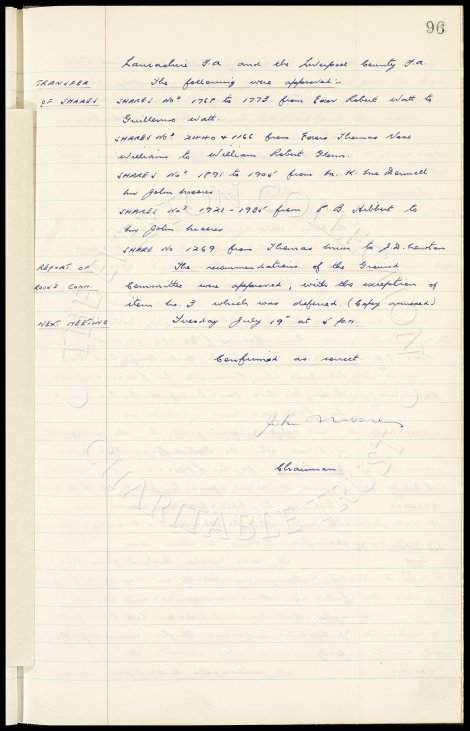 96
Lancashire F.A. and the Liverpool County F.A.
TRANSFER The following were approved:-
OF SHARES SHARES Nos 1768 to 1773 from Exor Robert Watt to
Guillermo Watt.
SHARES Nos 2440 & 1166 from Exors Thomas Vane
Williams to William Robert Glenn.
SHARES Nos 1891 to 1905 from M. K. Mc Donnell
to John Moores
SHARES Nos 1921 - 1935 from E B. Hibbert to
John Moores
SHARE No 1269 from Thomas to J.D. Lawton
REPORT OF The recommendations of the Ground
ROUND COMM. Committee were approved, with the exception of
item No. 3 which was deferred. (Copy annexed)
NEXT MEETING Tuesday July 19th at 5 p.m.
Confirmed as correct.
John Moores
Chairman
THE EVERTON COLLECTION
CHARITABLE TRUST